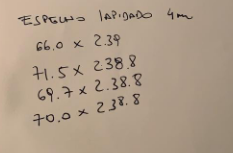 ESPELHO LAPIDADO 4m
66.0 x 2.39
71.5 x 238.8
69.7 x 2.38.8
70.0 x 238.8